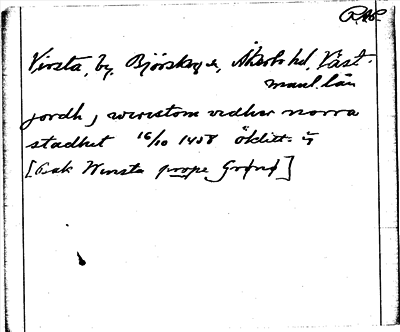 Virsta, by, Björskog s, Åkerbo hd, Väst-
manl. län
jordh j wirestom vedher norra
stadhet 16/10 1458 Öklitt. 4
[Bak Wirsta prope Grønø]